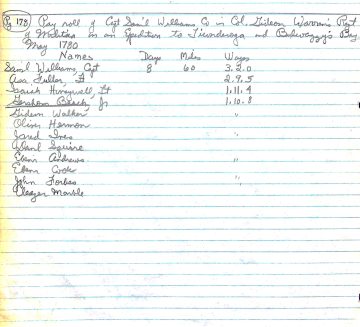 Pg 178 Pay roll of Cpt Sam'l Williams Co in Col. Gideon Warren's Regt
of Militia in an Expedition to Ticonderoga and Bulwaggy's Bay
May 1780
Names Days Miles Wages
Sam'l Williams, Cpt 8 60 3.2.0
Asa Fuller, Lt 2.9.5
Isaiah Honeywell, Lt 1.11.4
Gershom Beach, Jr 1.10.8
Gideon Walker "
Oliver Harmon
Jared Ives
Abiel Squire
Eben Andrews "
Eben Cook
John Forbes "
Eleazer Marble